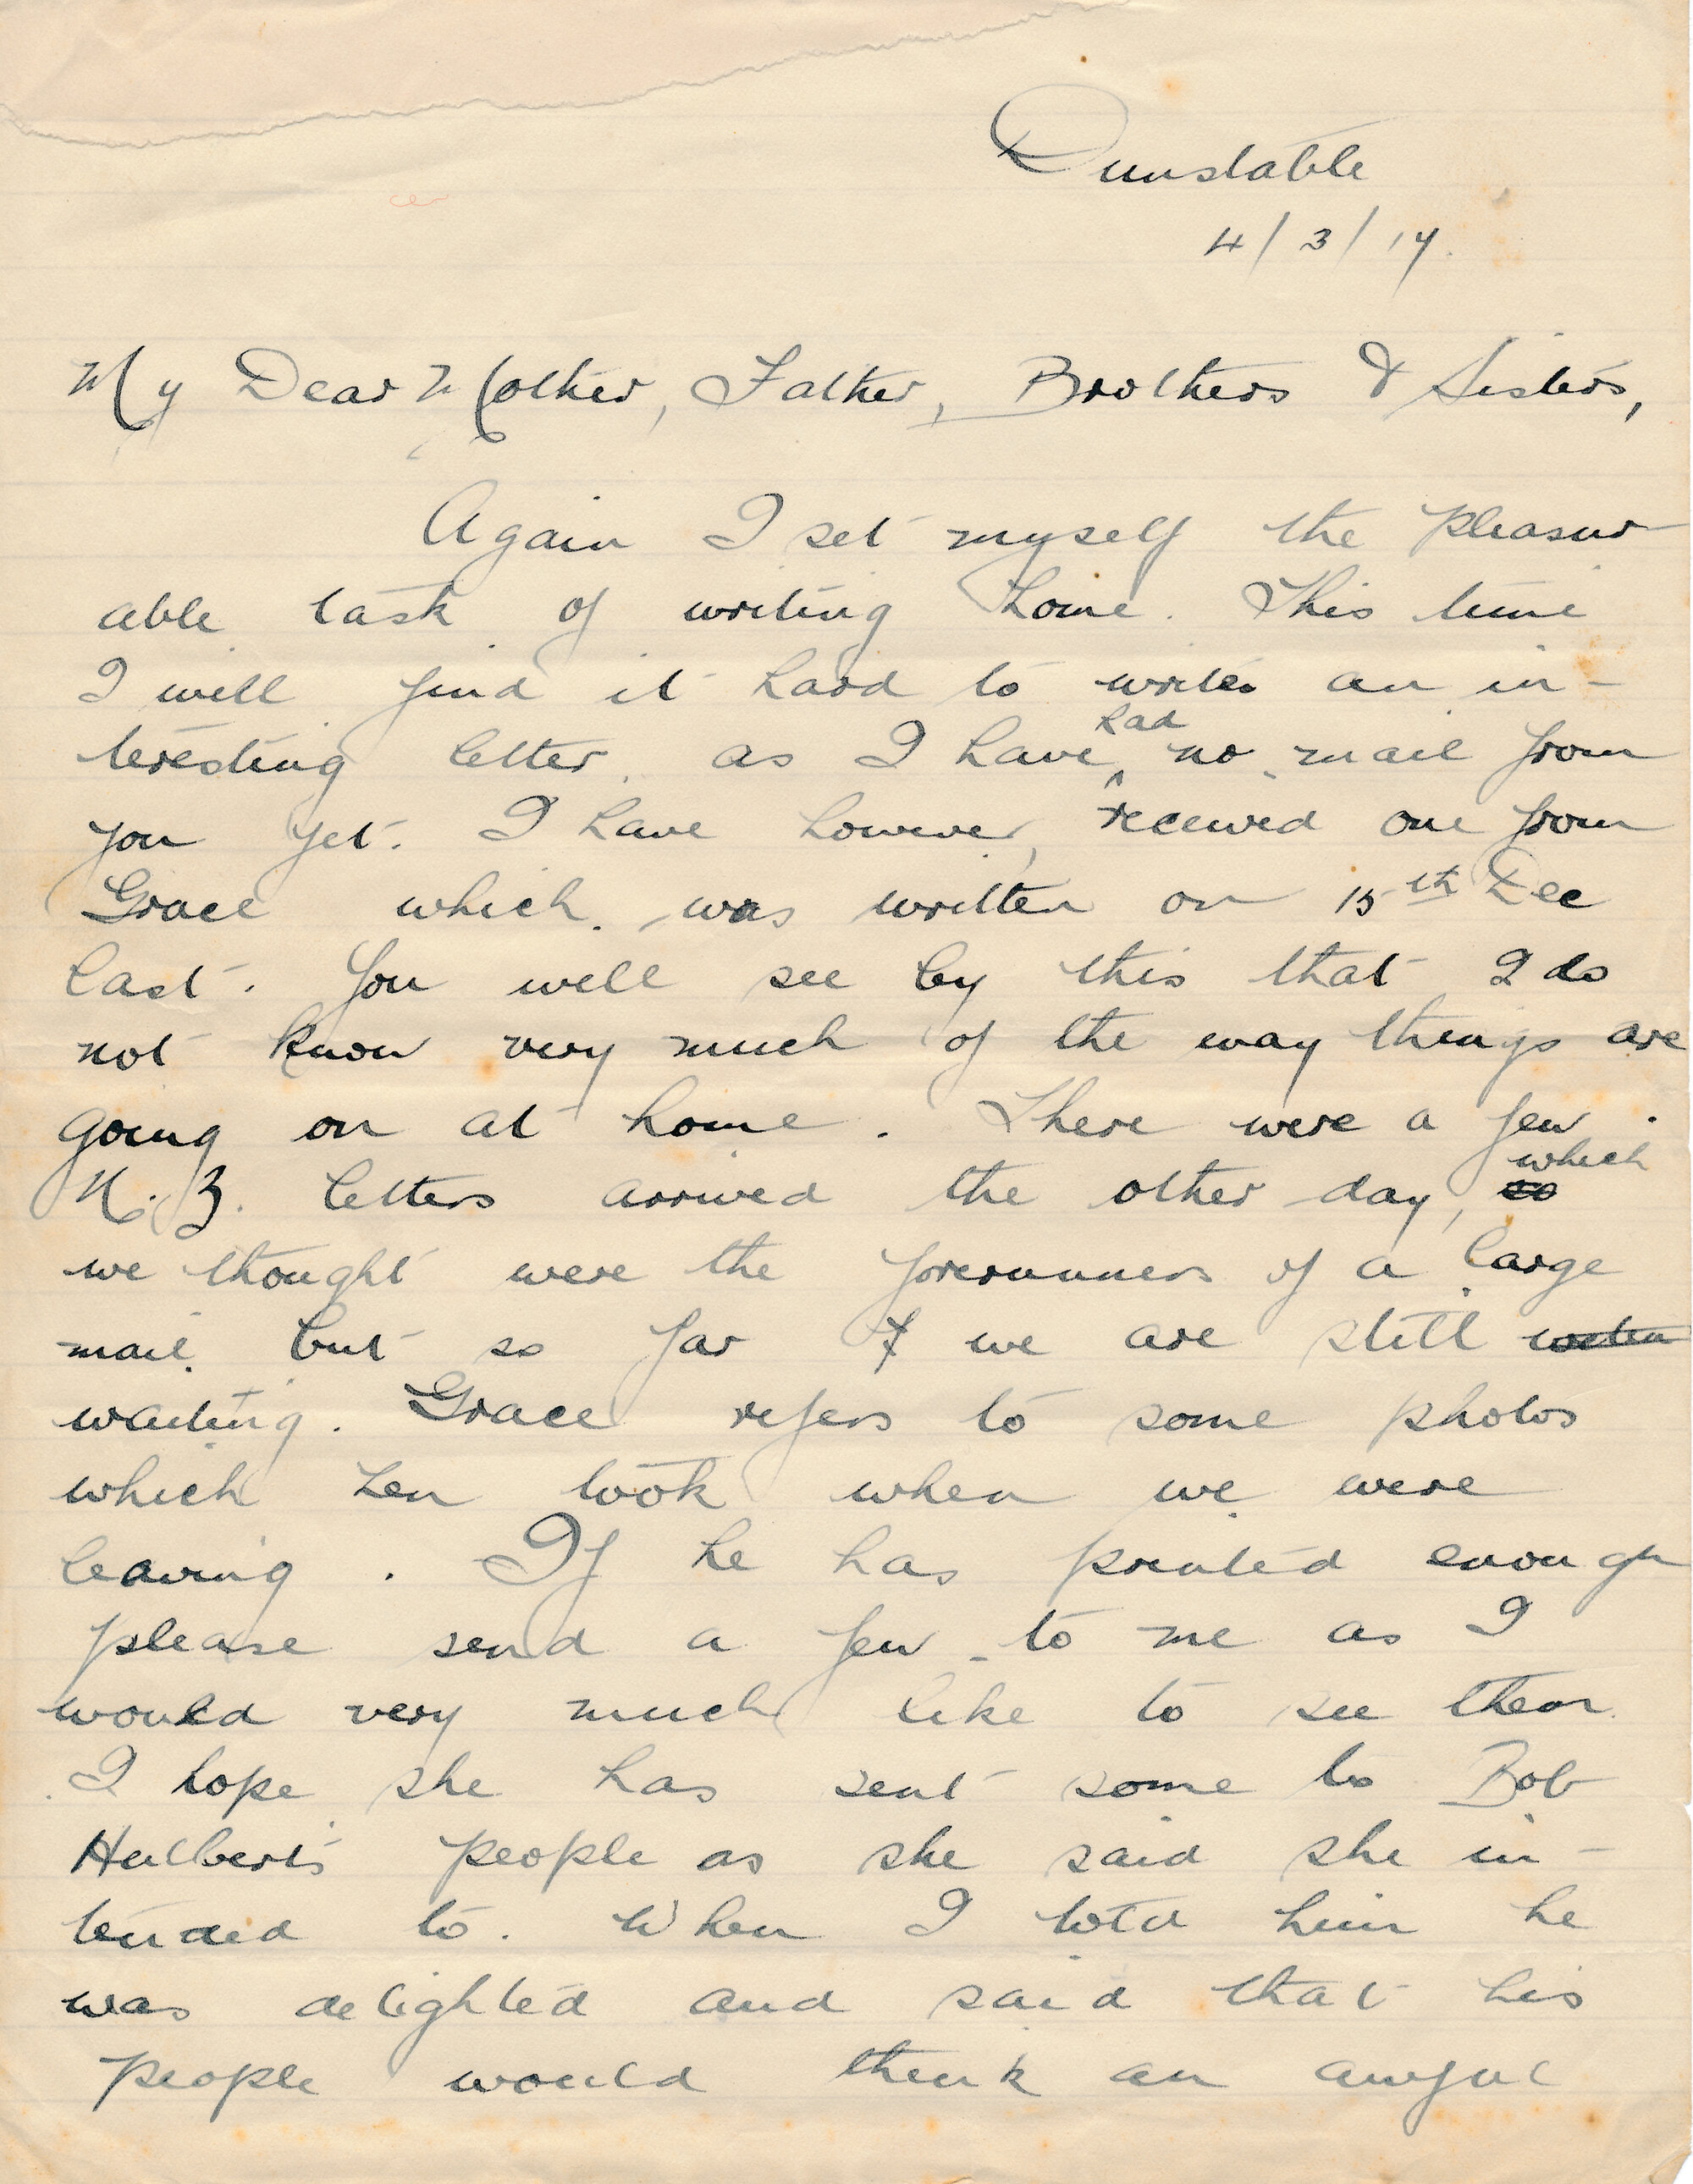 Dunstable
4/3/17.
My Dear Mother, Father, Brothers & Sisters,
Again I set myself the pleasur
able task of writing home. This time
I will find it hard to write an in-
teresting letter as I have had no mail from
you yet. I have however, received one from
Grace which was written on 15th Dec
last. You will see by this that I do
not know very much of the way things are
going on at home. There were a few
N.Z. letters arrived the other day, so which
we thought were the forerunners of a large
mail but so far I we are still
waiting. Grace refers to some photos
which Len took when we were
leaving. If he has printed enough
please send a few to me as I
would very much like to see them.
I hope she has sent some to Bob
Hulbert's people as she said she in-
tended to. When I told him he
was delighted and said that his
people would think an awful